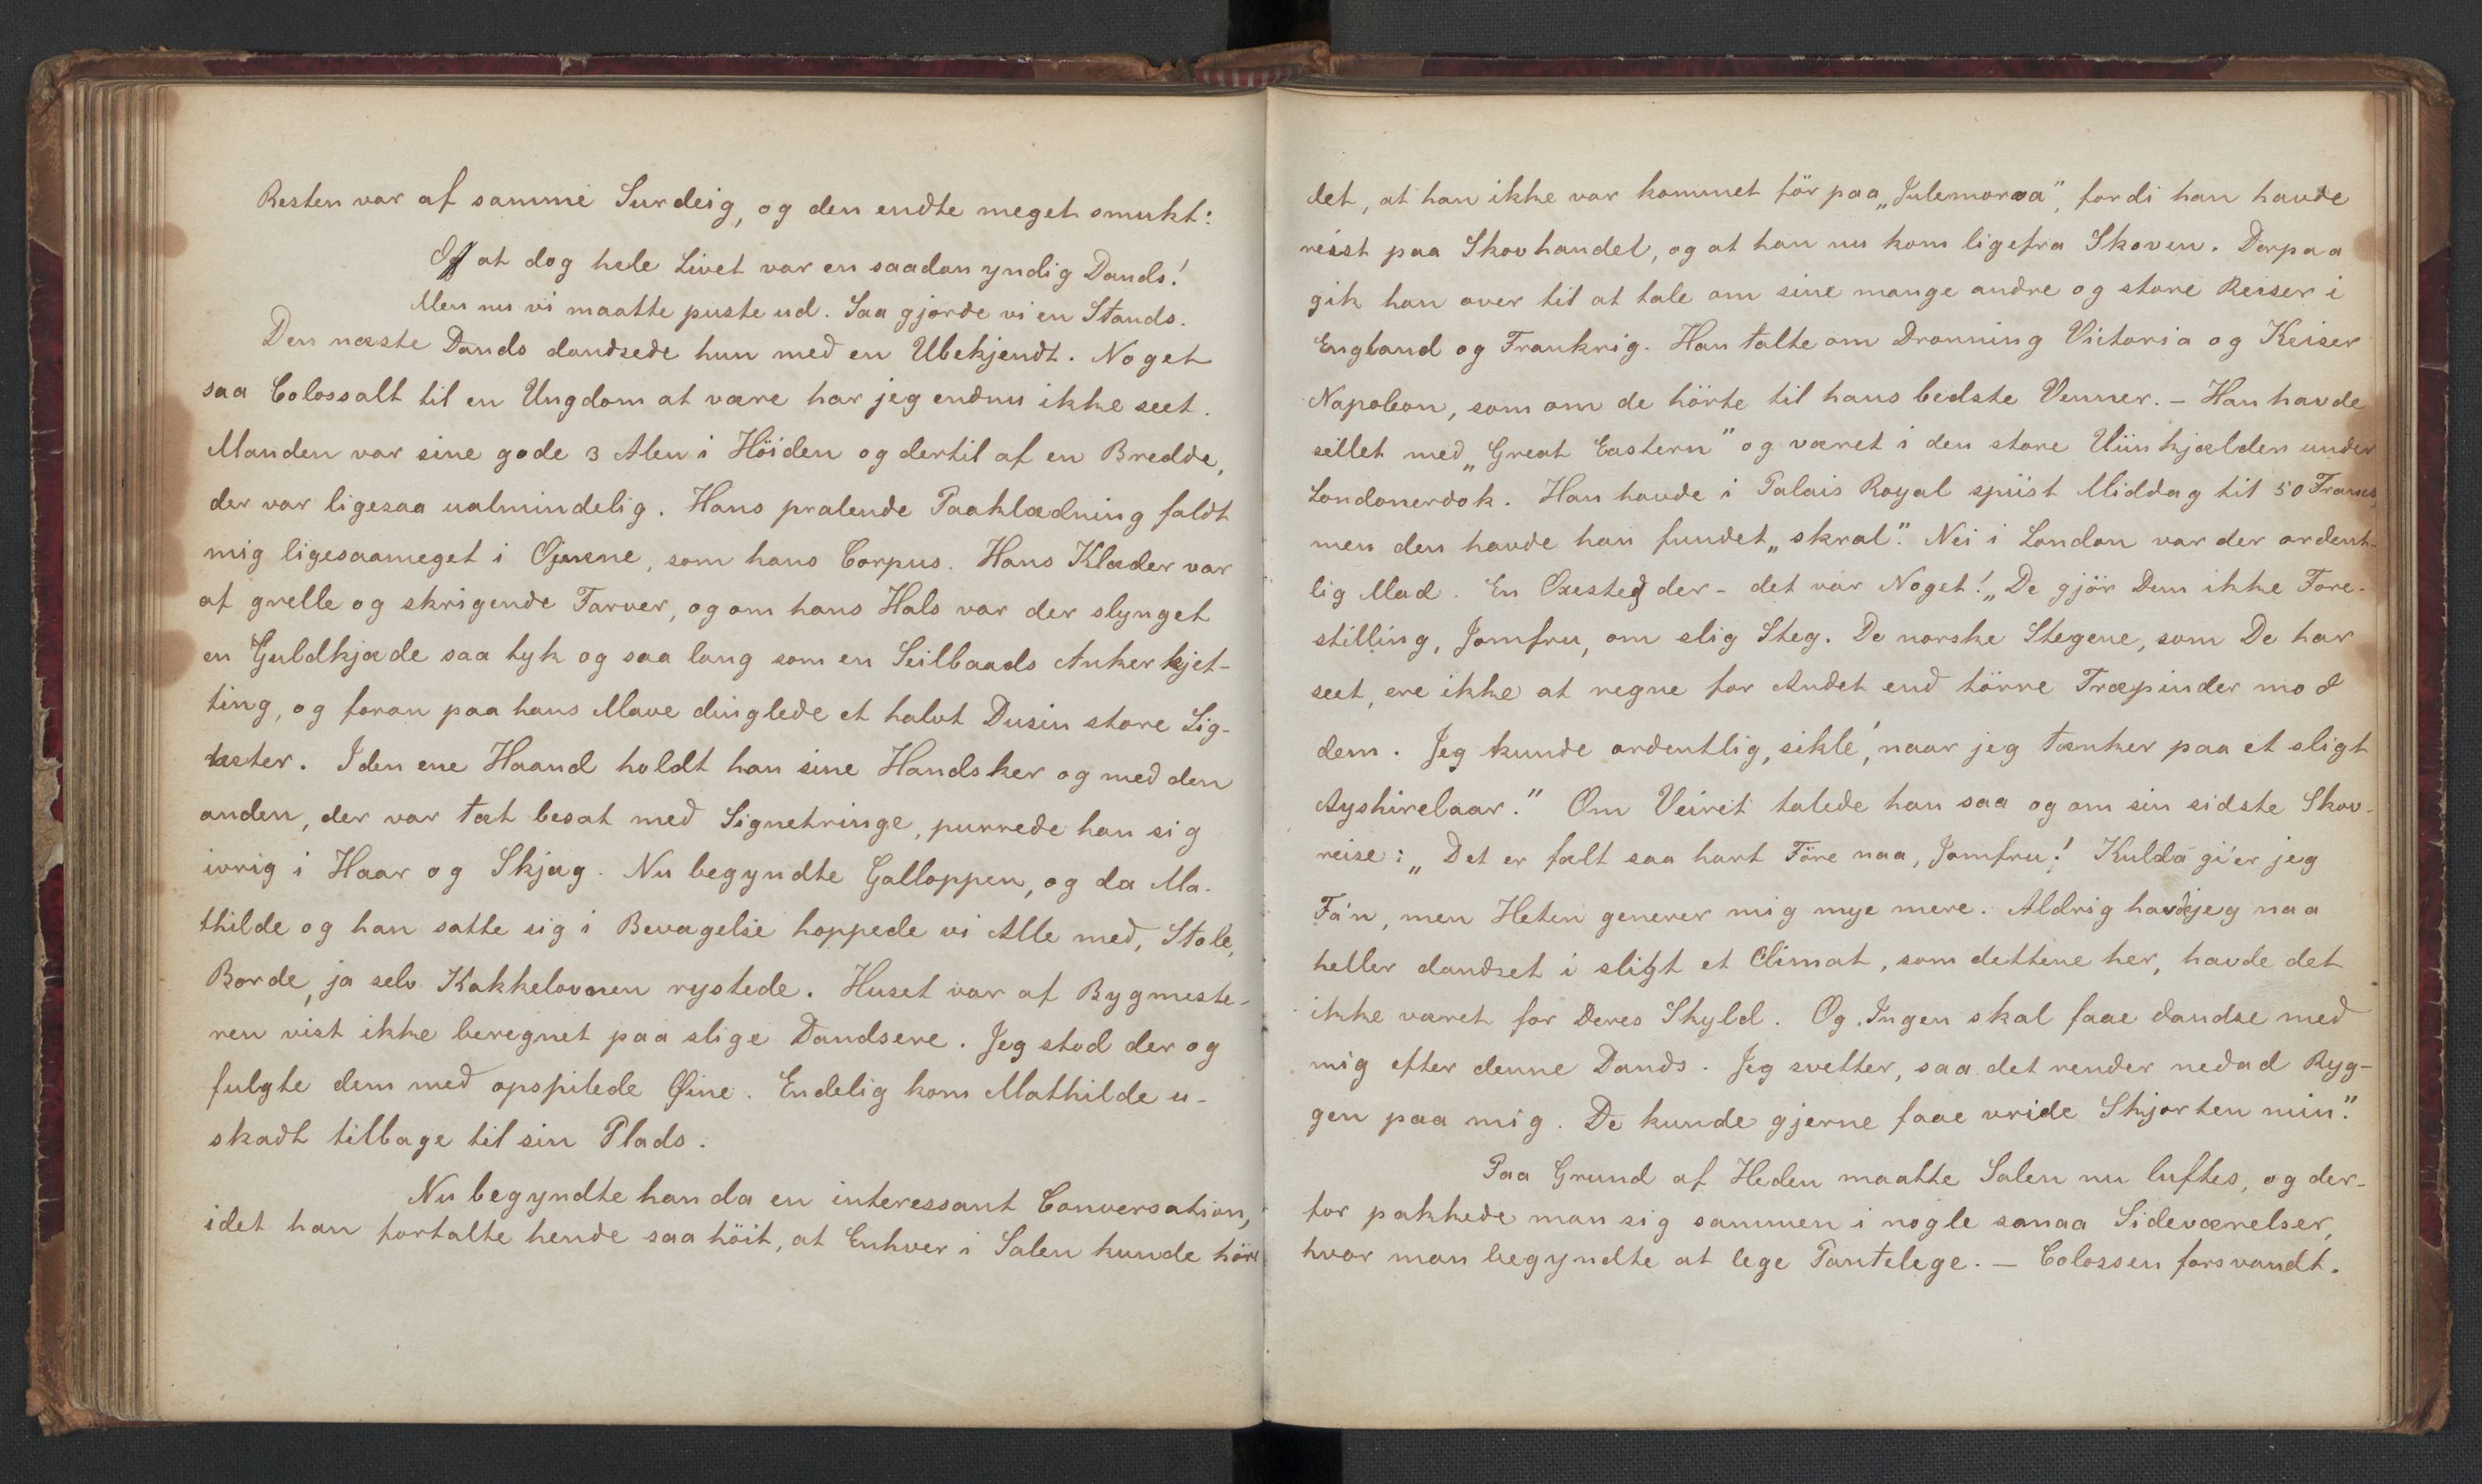 Resten var af samme Surdeig, og den endte meget smukt:
Of at dog hele Livet var en saadan yndig Dands!
Men nu vi maatte puste ud. Saa gjorde vi en Stands.
Den næste Dands dandsede hun med en Ubekjendt. Noget
saa Colossalt til en Ungdom at være har jeg endnu ikke seet.
Manden var sine gode 3 Alen i Höiden og dertil af en Bredde,
der var ligesaa ualmindelig. Hans pralende Paaklædning faldt
mig ligesaameget i Øjnene, som hans Corpus. Hans Klæder var
af grelle og skrigende Farver, og om hans Hals var der slynget
en Guldkjæde saa tyk og saa lang som en Seilbaads Ankerkjet-
ting, og foran paa hans Mave dinglede et halvt Dusin store Sig-
neter. I den ene Haand holdt han sine Handsker og med den
anden, der var tæt besat med Signetringe, purrede han sig
ivrig i Haar og Skjæg. Nu begyndte Galloppen, og da Ma-
thilde og han satte sig i Bevægelse hoppede vi Alle med, Stole,
Borde, ja selv Kakkelovnen rystede. Huset var af Bygmeste-
ren vist ikke beregnet paa slige Dandsere. Jeg stod der og
fulgte dem med opspilede Øine. Endelig kom Mathilde u-
skadt tilbage til sin Plads.
Nu begyndte han da en interessant Conversation,
idet han fortalte hende saa höit, at Enhver i Salen kunde höre
det, at han ikke var kommet för paa „Julemoroa", fordi han havde
reist paa Skovhandel, og at han nu kom ligefra Skoven. Derpaa
gik han over til at tale om sine mange andre og store Reiser i
England og Frankrig. Han talte om Dronning Victoria og Keiser
Napoleon, som om de hörte til hans bedste Venner. – Han havde
seilet med „Great Eastern" og været i den store Viinkjælden under
Londonerdok. Han havde i Palais Royal spiist Middag til 50 Francs,
men den havde han fundet „skral". Nei i London var der ordent-
lig Mad. En Oxesteg der – det var Noget! „De gjör Dem ikke Fore-
stilling, Jomfru, om slig Steg. De norske Stegene, som De har
seet, ere ikke at regne for Andet end törre Træpinder mod
dem. Jeg kunde ordentlig, sikle', naar jeg tænker paa et sligt
Ayshirelaar." Om Veiret talede han saa og om sin sidste Skov-
reise: „Det er fælt saa hart Före naa, Jomfru! Kulda gi'er jeg
Fa'n, men Heten generer mig mye mere. Aldrig havde jeg naa
heller dandset i sligt et Climat, som dettene her, havde det
ikke været for Deres Skyld. Og Ingen skal faae dandse med
mig efter denne Dands. Jeg svetter, saa det render nedad Ryg-
gen paa mig. De kunde gjerne faae vride Skjorten min."
Paa Grund af Heden maatte Salen nu luftes, og der-
for pakkede man sig sammen i nogle smaa Sideværelser,
hvor man begyndte at lege Pantelege. – Colossen forsvandt.